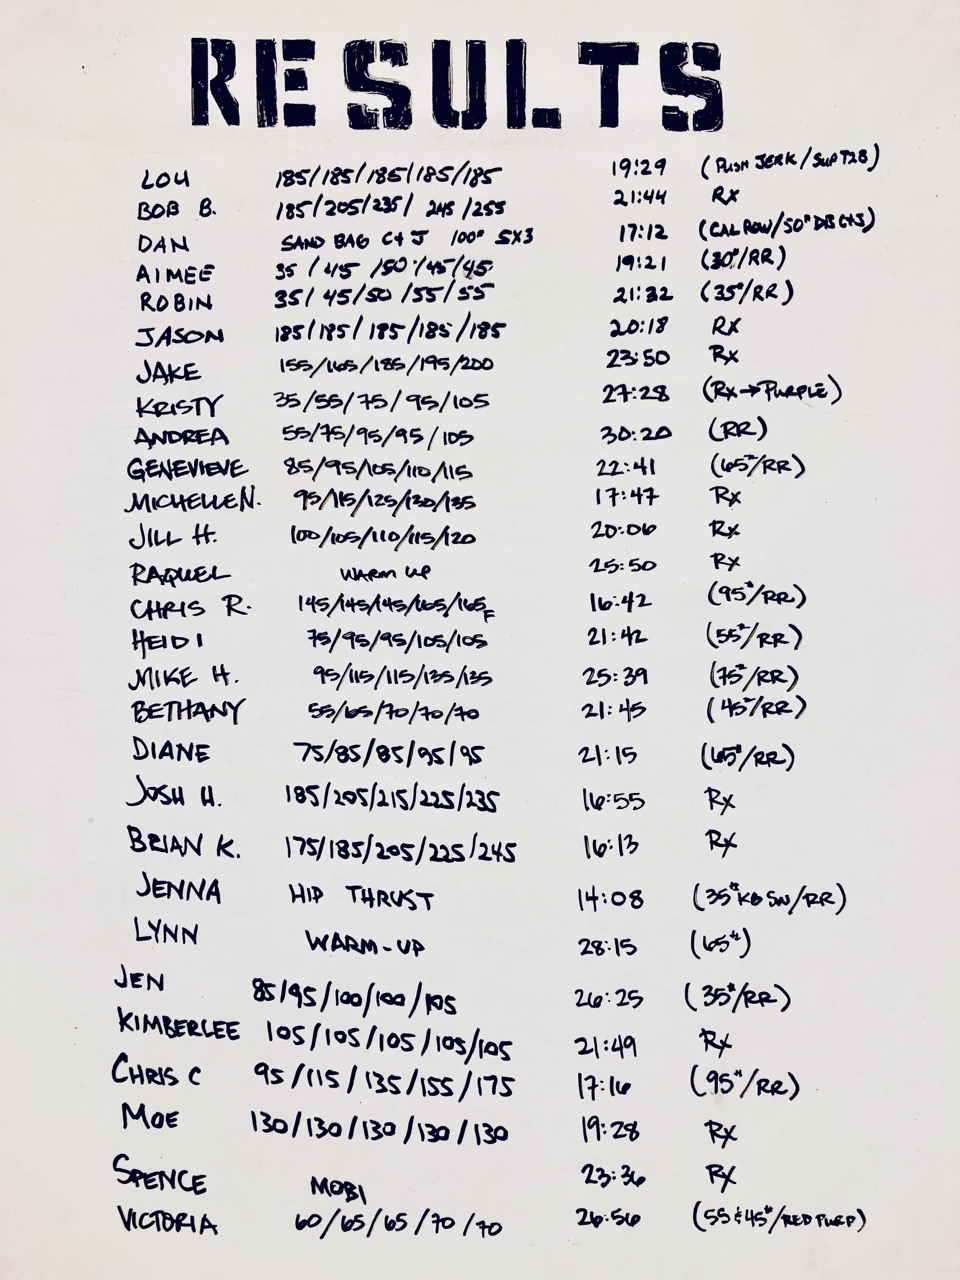 RESULTS
LOU 185/185/185/185/185 19:29 (PUSH JERK/SUP T2B)
BOB B. 185/205/235/ 245/255 21:44 Rx
DAN SAND BAG C+J 100# 5X3 17:12 (CAL ROW/50#
AIMEE 35/45/50/45/45 19:21 (30#/RR)
ROBIN 35/45/50/55/55 21:32 (35#/RR)
JASON 185/185/185/185/185 20:18 Rx
JAKE 155/165/185/195/200 23:50 Rx
KRISTY 35/55/75/95/105 27:28 (Rx→PURPLE)
ANDREA 55/75/95/95/105 30:20 (RR)
GENEVIEVE 85/95/105/110/115 22:41 (65#/RR)
MICHELLE N. 95/115/125/130/135 17:47 Rx
JILL H. 100/105/110/115/120 20:06 Rx
RAQUEL WARM UP 25:50 Rx
CHRIS R. 145/145/145/165/165F 16:42 (95#/RR)
HEIDI 75/95/95/105/105 21:42 (55#/RR)
MIKE H. 95/115/115/135/135 25:39 (75#/RR)
BETHANY 55/65/70/70/70 21:45 (45#/RR)
DIANE 75/85/85/95/95 21:15 (65#/RR)
JOSH H. 185/205/215/225/235 16:55 Rx
BRIAN K. 175/185/205/225/245 16:13 Rx
JENNA HIP THRUST 14:08 (35# KB SW/RR)
LYNN WARM-UP 28:15 (65#)
JEN 85/95/100/100/105 26:25 (35#/RR)
KIMBERLEE 105/105/105/105/105 21:49 Rx
CHRIS C 95/115/135/155/175 17:16 (95#/RR)
MOE 130/130/130/130/130 19:28 Rx
SPENCE MOBI 23:36 Rx
VICTORIA 60/65/65/70/70 26:56 (55 & 45#/RED PURP)